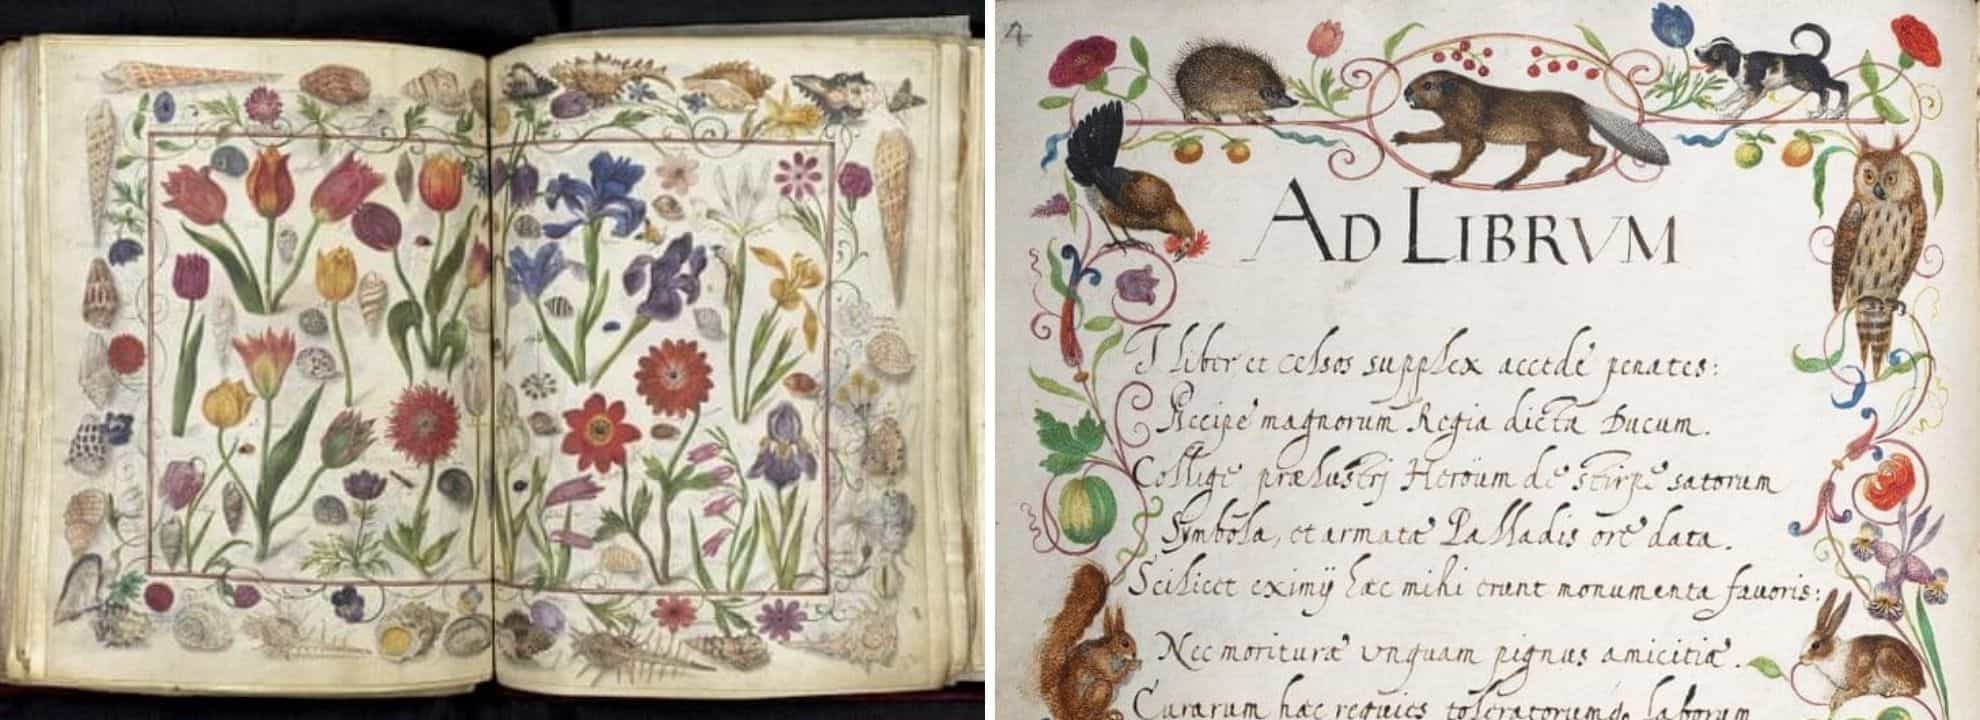 AD LIBRVM
I liber et celsos supplex accede penates:
Recipe magnorum Regia dicta Ducum.
Collige prælustrj Heröum de stirpe satorum
Symbola, et armatæ Palladis ore data.
Scilicet eximÿ hæc mihi erunt monumenta fauoris:
Nec morituræ vnquam pignus amicitiæ.
Curarum hæc requies toleratorumq. laborum